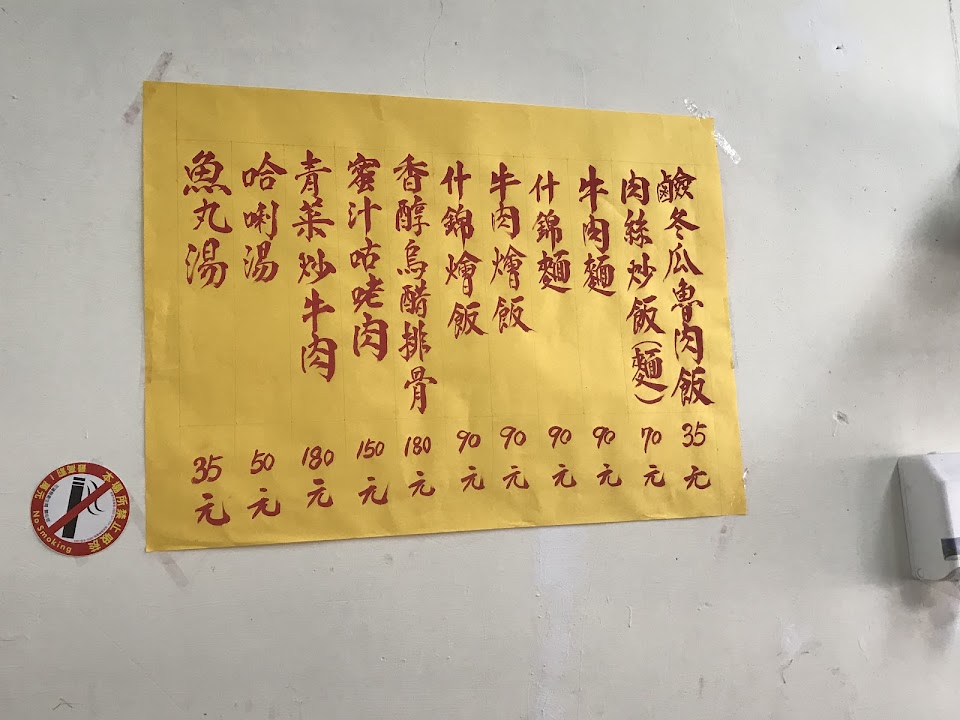 鹼冬瓜魯肉飯 35元
肉絲炒飯(麵) 70元
牛肉麵 90元
什錦麵 90元
牛肉燴飯 90元
什錦燴飯 90元
香醇烏醋排骨 180元
蜜汁咕咾肉 150元
青菜炒牛肉 180元
哈唎湯 50元
魚丸湯 35元
本場所禁止吸菸
No Smoking